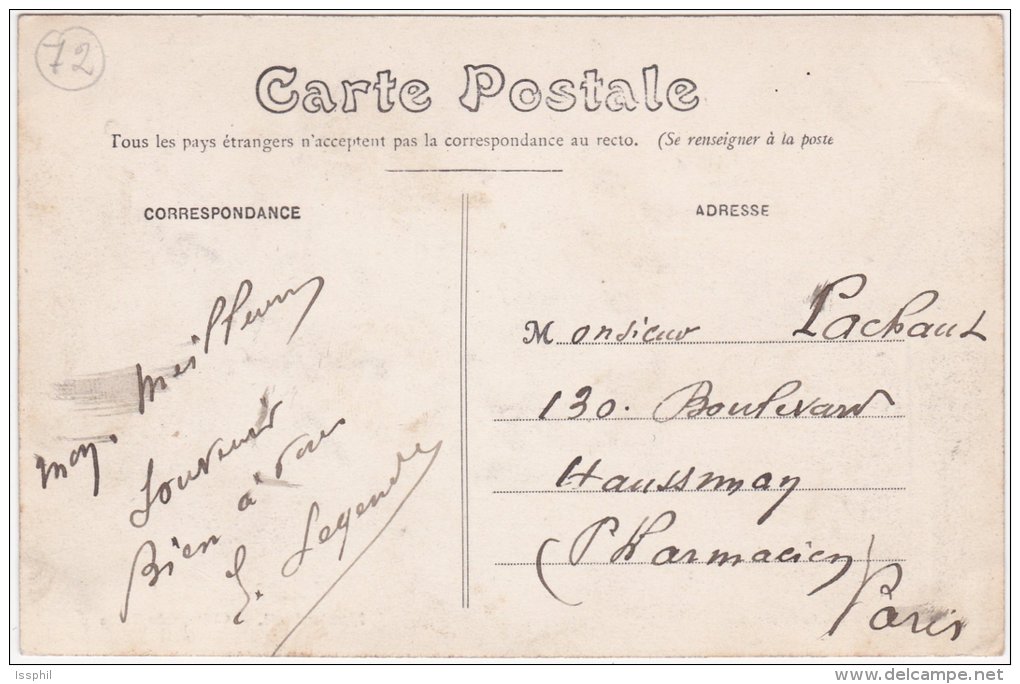 72
Carte Postale
Tous les pays étrangers n'acceptent pas la correspondance au recto. (Se renseigner à la poste
CORRESPONDANCE
mon meilleur
Souvenir
Bien à vous
ADRESSE
Monsieur Lachaut
130. Boulevard
Haussmay
(Pharmacien)
Paris
Issphil
delcampe.net